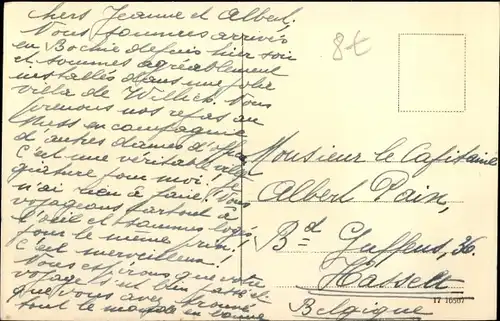 Chers Jeanne et Albert.
Nous sommes arrivés
en Bochie depuis hier soir
et sommes agréablement
installés dans une jolie
villa de Willich. Nous
prenons nos repas au
Mess en compagnie
d'autres dames d'off.
C'est une véritable villé
giature pour moi. Je
n'ai rien à faire. Nous
voyageons partout à
l'œil et sommes logés
pour le même prix!
C'est merveilleux!
Nous espérons que votre
voyage s'est bien passé et
que vous avez trouvé
tout le monde en bonne
8t
Monsieur le Capitaine
Albert Paix,
Bd Guffens, 36.
Hasselt
Belgique
17 16567